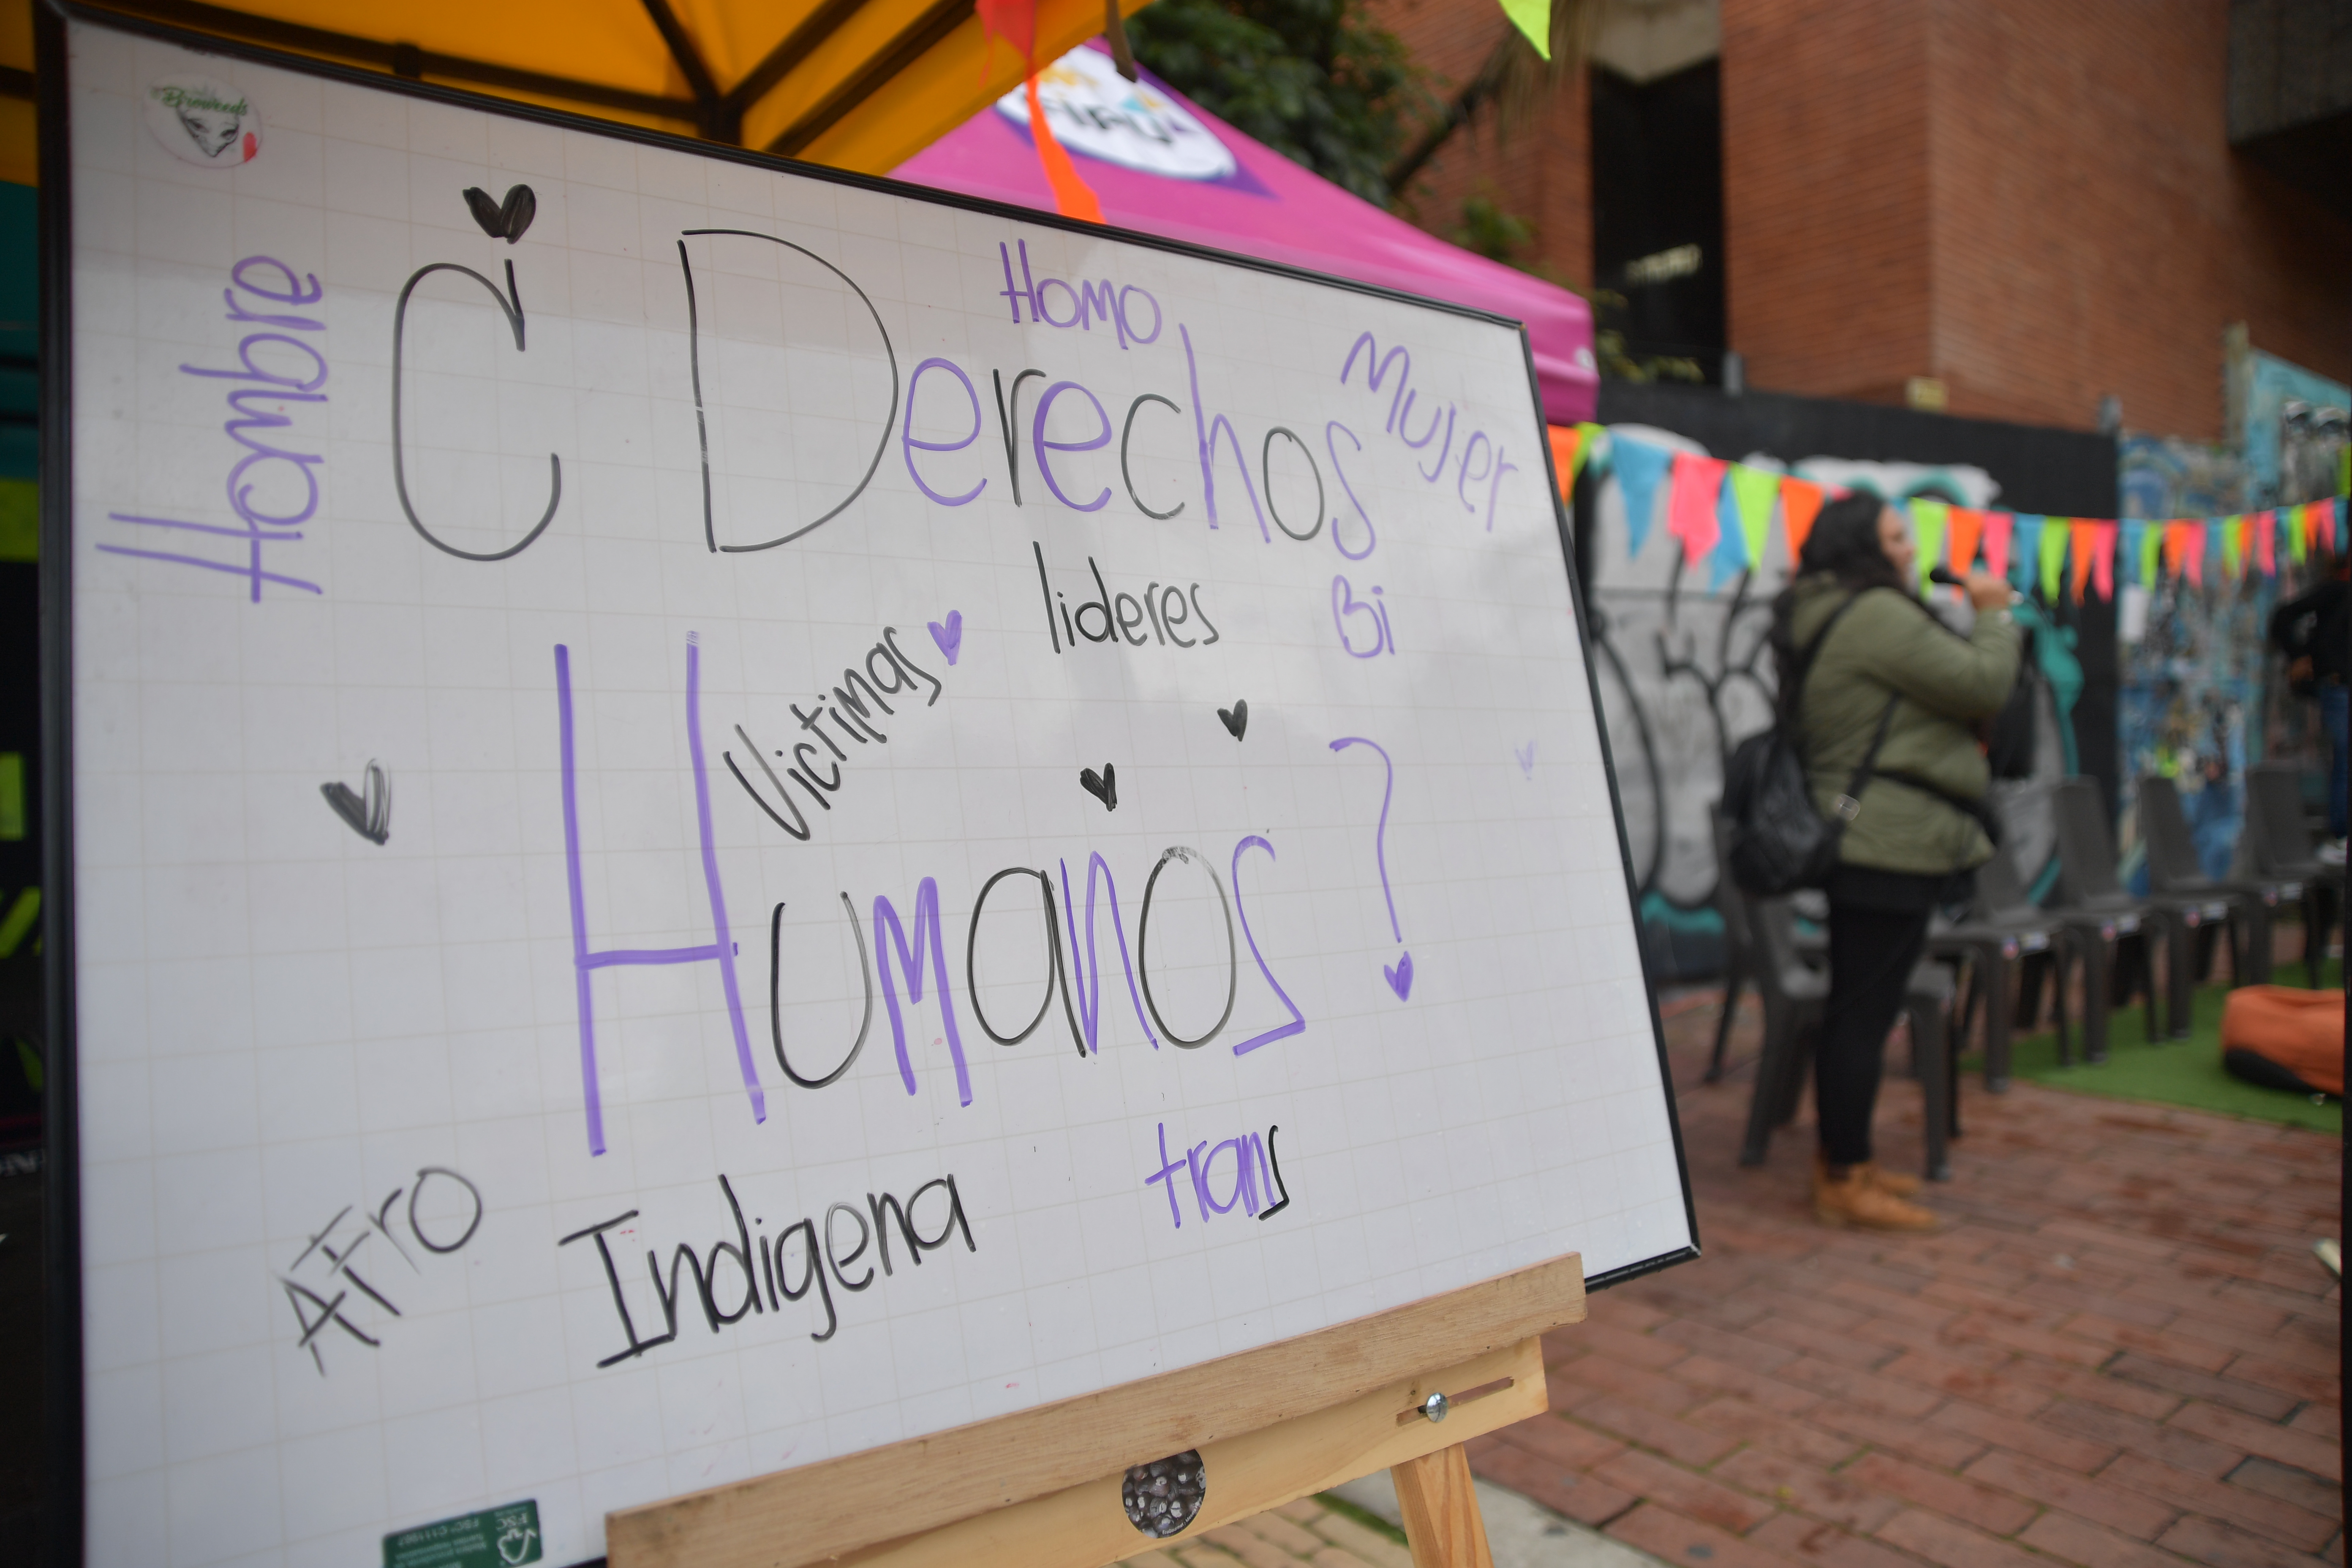 Hombre
¿ Derechos
Homo
Mujer
lideres
Bi
Victimas
Humanos ?
Afro
Indigena
trans
FSC